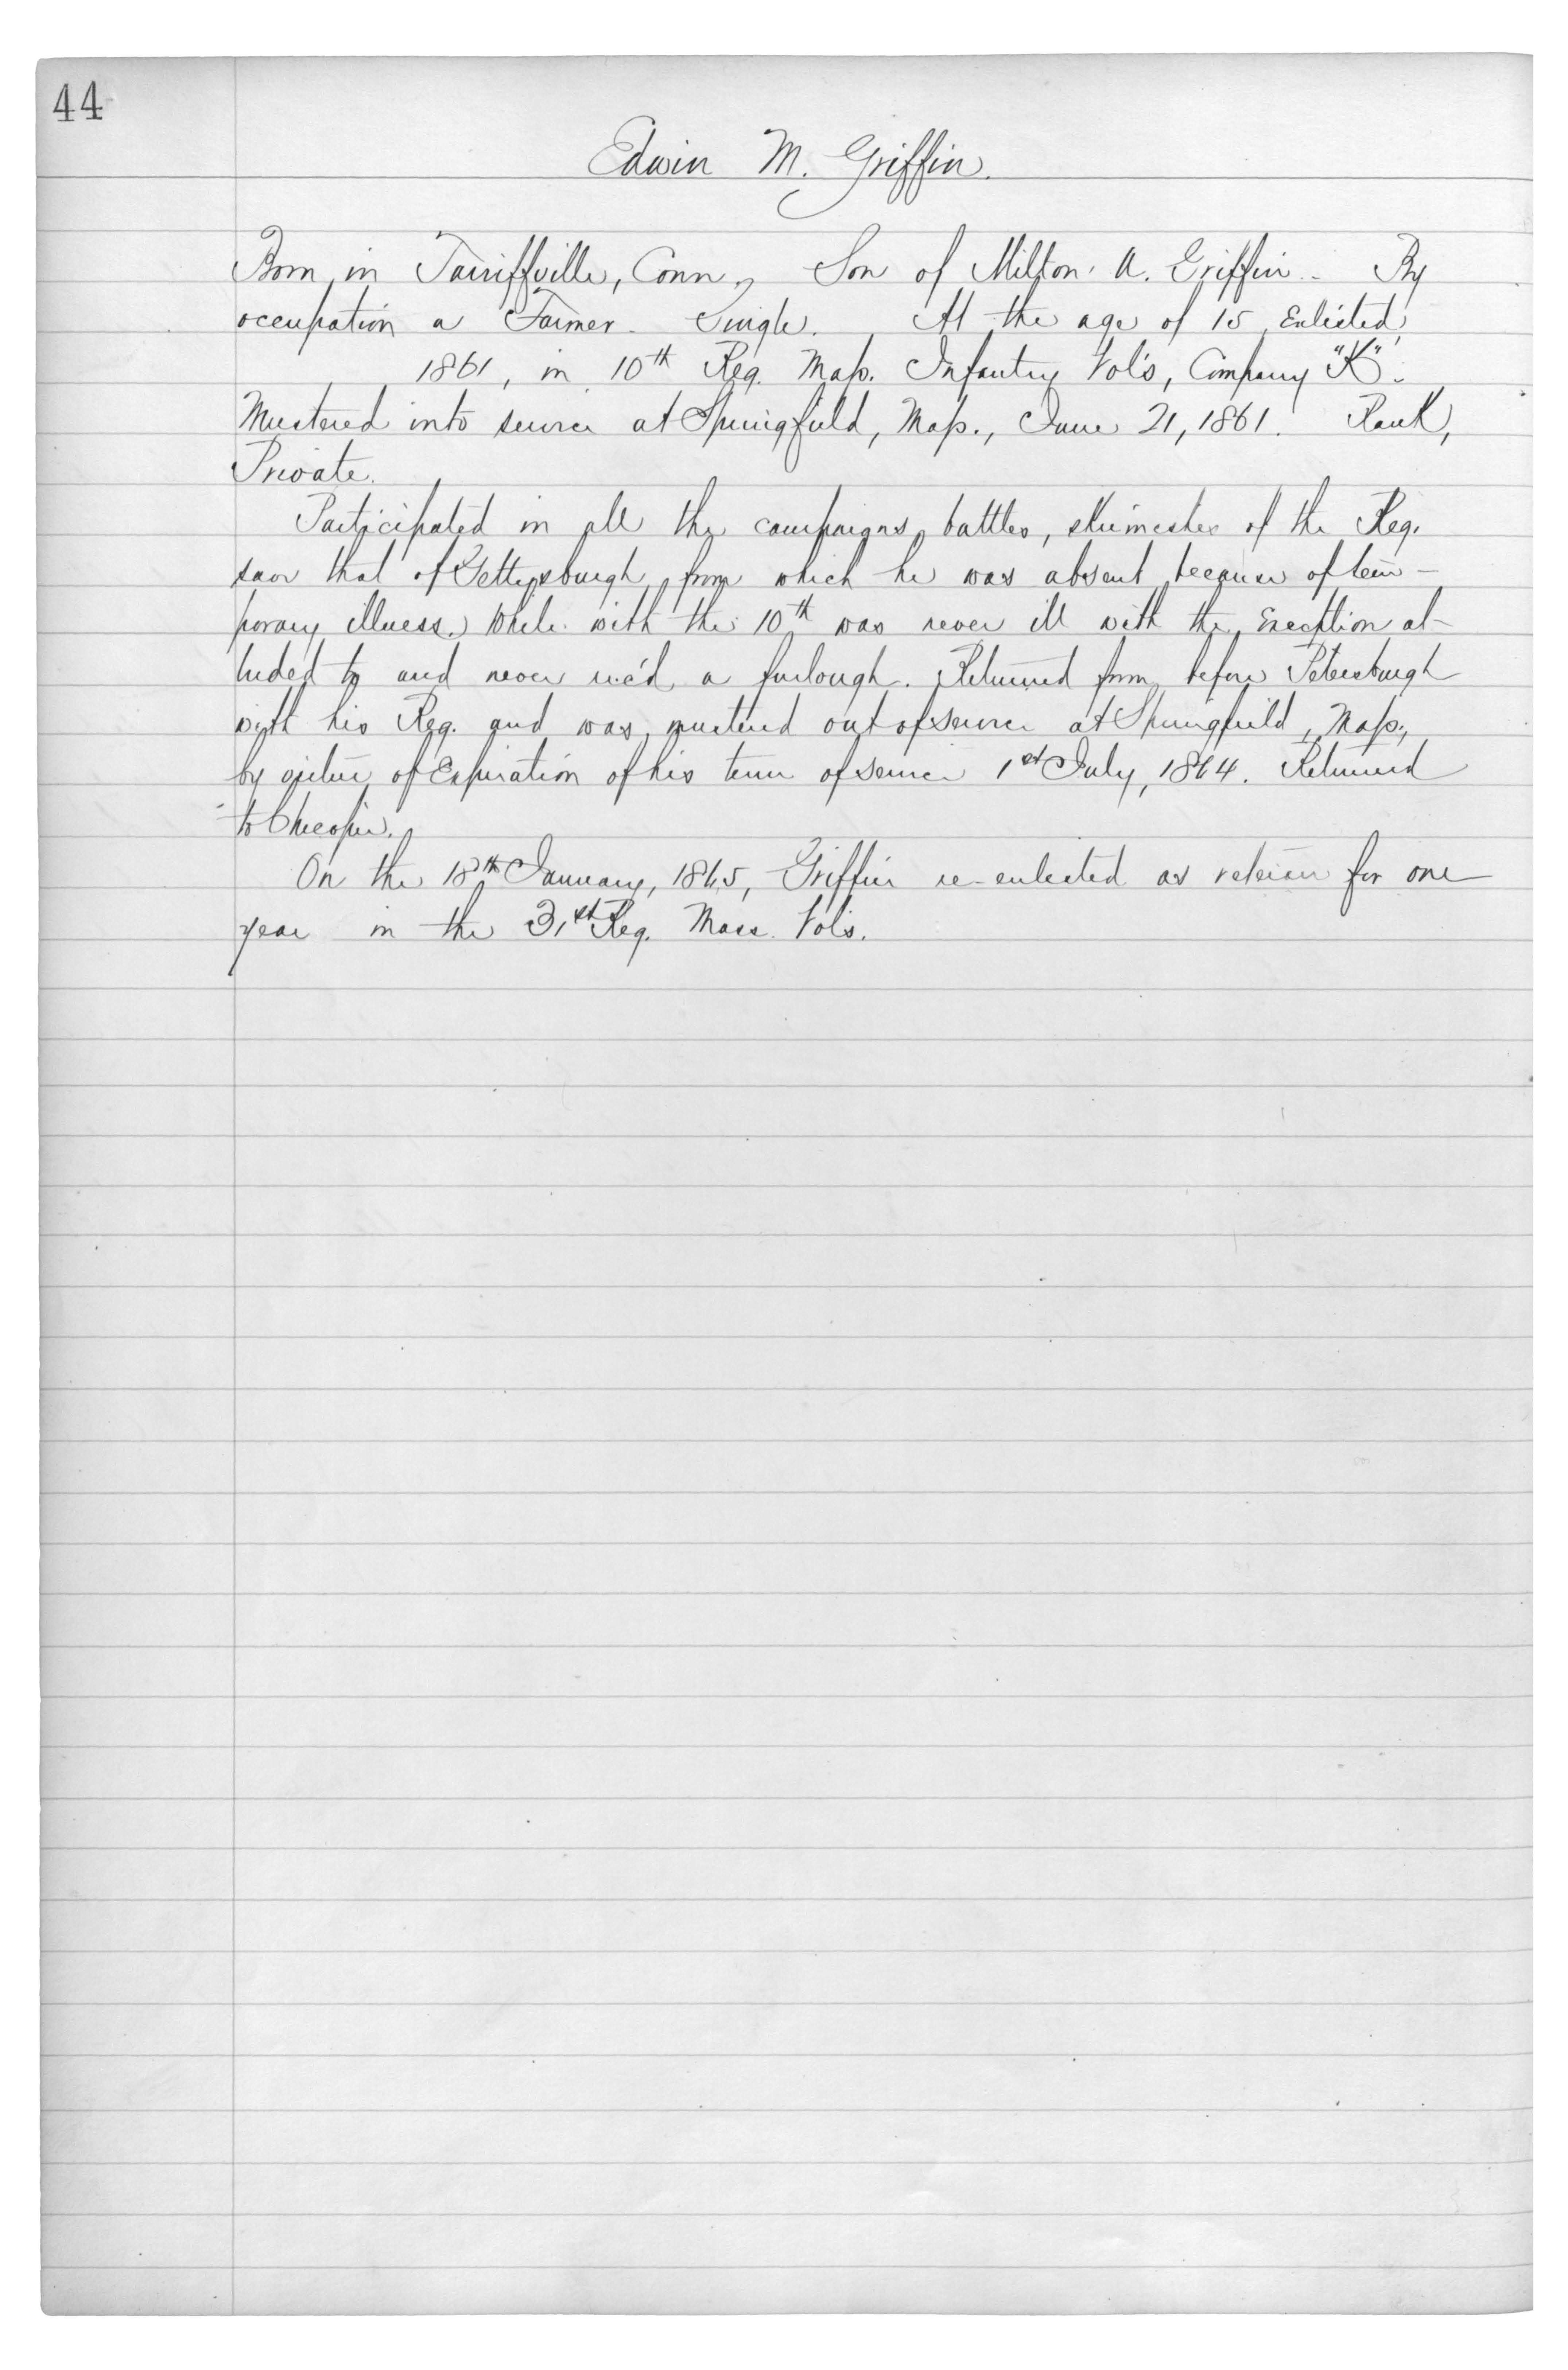 44
Edwin M. Griffin.
Born in Tariffville, Conn., Son of Milton A. Griffin. By
occupation a Farmer. Single. At the age of 15 Enlisted,
1861, in 10th Reg. Mass. Infantry Vol's, Company "K".
Mustered into service at Springfield, Mass., June 21, 1861. Rank,
Private.
Participated in all the campaigns, battles, skirmishes of the Reg.
save that of Gettysburgh, from which he was absent because of tem-
porary illness. While with the 10th was never ill with the Exception al-
luded to and never rec'd a furlough. Returned from before Petersburgh
with his Reg. and was mustered out of service at Springfield, Mass.,
by virtue of Expiration of his term of service 1st July, 1864. Returned
to Chicopee.
On the 18th January, 1865, Griffin re-enlisted as veteran for one
year in the 31st Reg. Mass. Vol's.